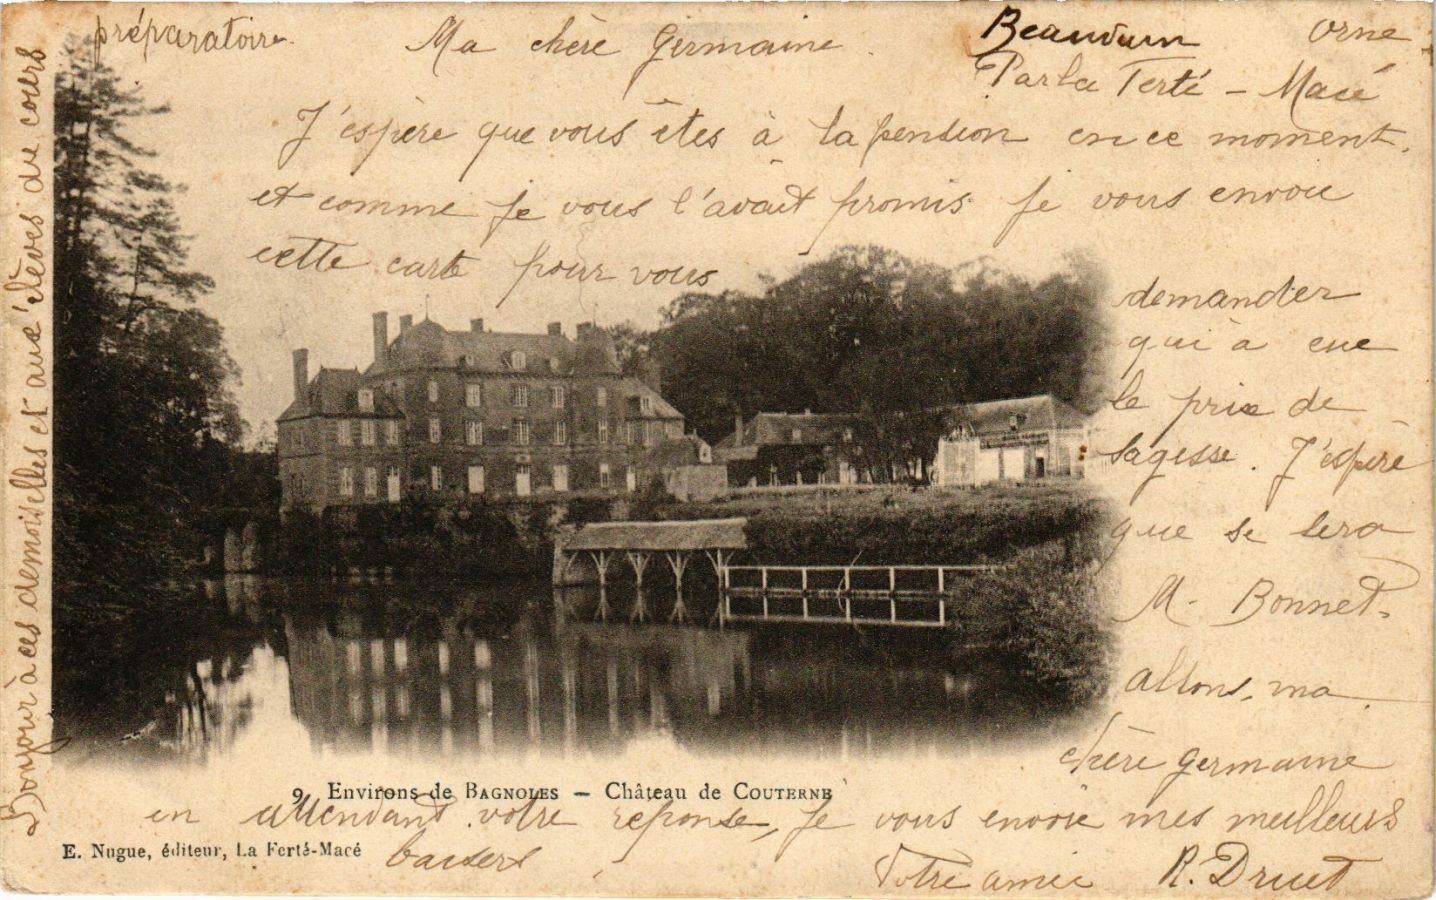 Beauvain Orne
Par la Ferté - Macé
Ma chère Germaine
J'espère que vous êtes à la pension en ce moment.
et comme je vous l'avait promis je vous envoie
cette carte pour vous
demander
qui à eue
le prix de
sagesse. J'espère
que se sera
M. Bonnet.
allons, ma
chère germaine
en attendant votre réponse, je vous envoie mes meilleurs
baisers
Votre amie R. Druet
Bonjour à ces demoiselles et aux élèves du cours
préparatoire.
9 Environs de BAGNOLES — Château de COUTERNE
E. Nugue, éditeur, La Ferté-Macé